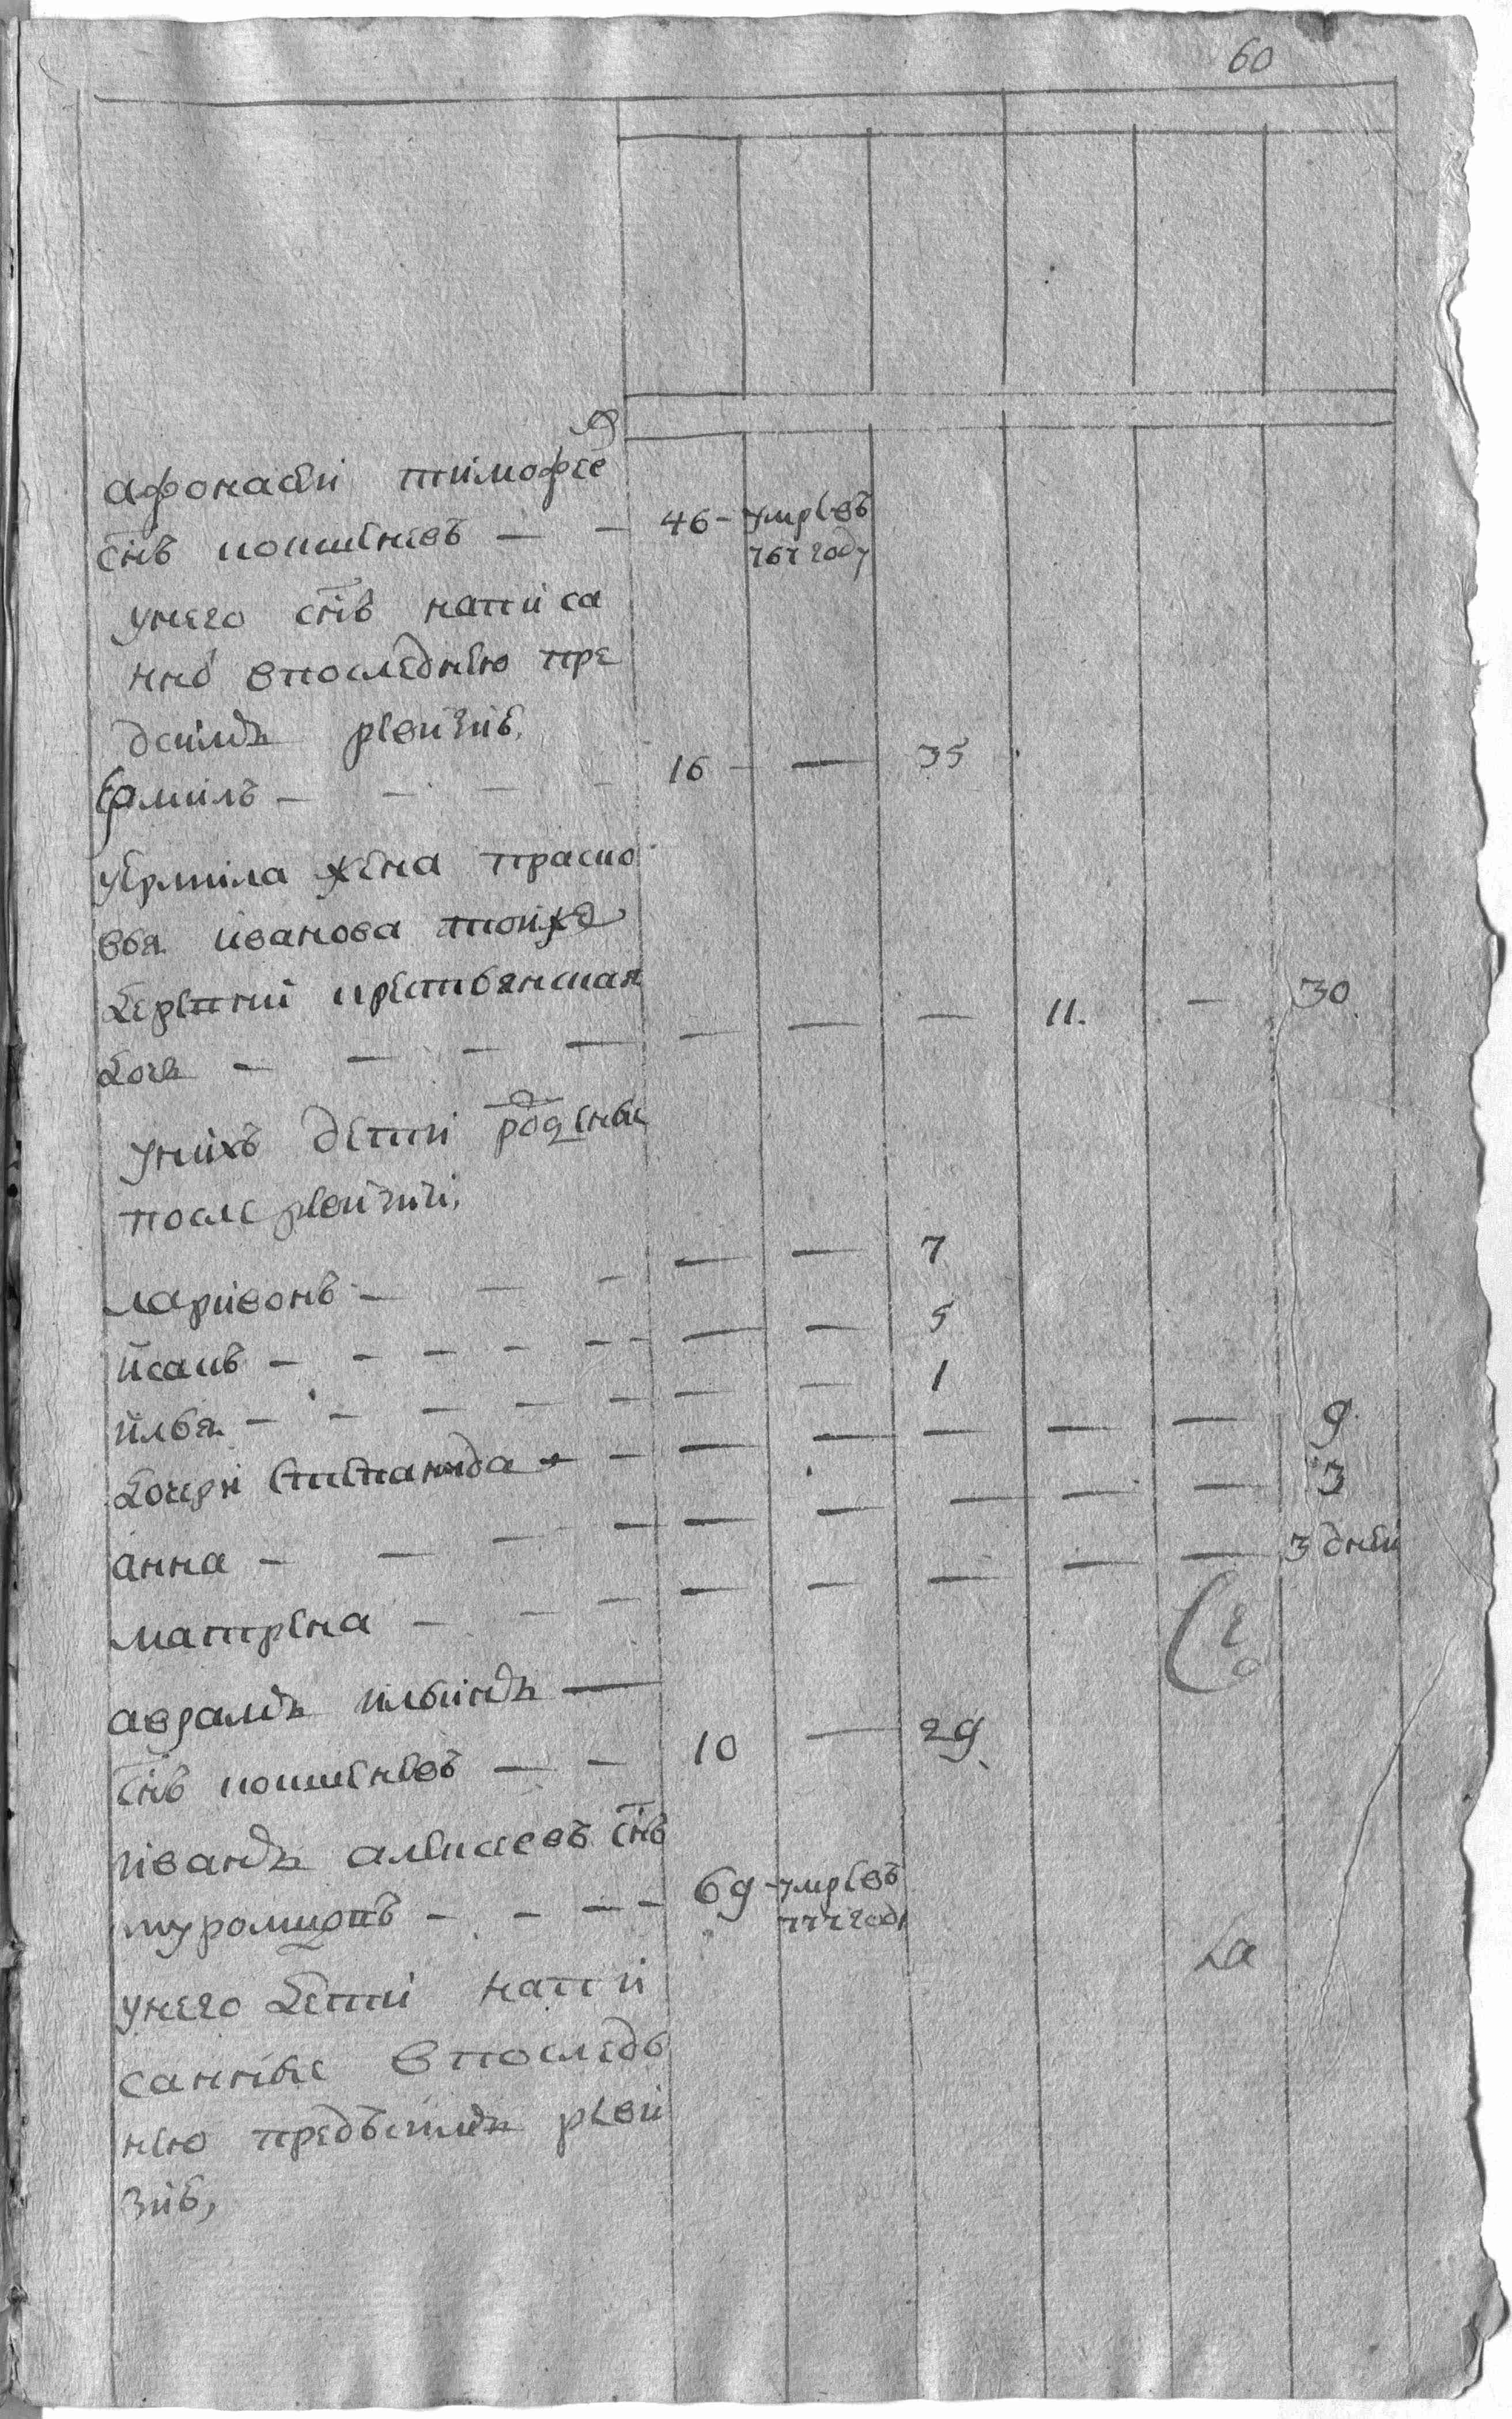 60
афонасеи тимофее
в
снъ кошеневъ — — 46 — умревъ
767 году
унего снъ написа
нной впоследнею пре
дсимъ ревизию,
Ермилъ — — — — 16 — — 35
уермила жена праско
вья иванова тойже
деревни крестьянская
дочь — — — — — — — 11. — 30
унихъ дети рожденые
после ревизии,
ларивонъ — — — — — 7
исакъ — — — — — — — 5
илья — — — — — — — 1
дочери степанида — — — — — — — 9
анна — — — — — — — — — 3
матрена — — — — — — — — 3 дней
аврамъ ильинъ —
снъ кошеневъ — — 10 — 29
иванъ алексеевъ снъ
туромцовъ — — — — 69 — умревъ
777 году
унего дети напи
санные впоследь
нею предъсимъ реви
зию,